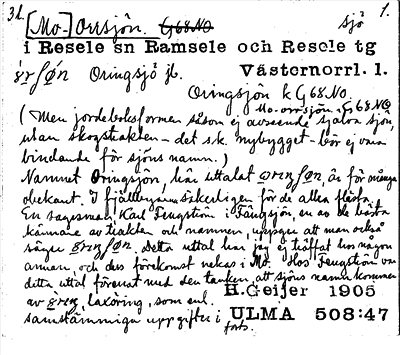 31. [Mo-] Orrsjön. G 68 NO sjö 1.
i Resele sn Ramsele och Resele tg
Oringsjö jb. Västernorrl. l.
Oringsjön k G 68 NO.
Mo-orrsjön G 68 NO
(Men jordeboksformen såsom ej avseende själva sjön,
utan skogstrakten – det s.k. nybygget – bör ej vara
bindande för sjöns namn.)
Namnet Oringsjön, här uttalat, är för många
obekant. I fjällbyarna säkerligen för de allra flesta.
En sagesman, Karl Tengström i Tängsjön, en av de bästa
kännare av trakten och namnen, uppgav att man också
säger. Detta uttal har jag ej träffat hos någon
annan, och dess förekomst nekas i Mo. Hos Tengström var
detta uttal förenat med den tanken, att sjöns namn kommer
av, laxöring, som enl.
H. Geijer 1905
samstämmiga uppgifter i ULMA 508:47
forts.